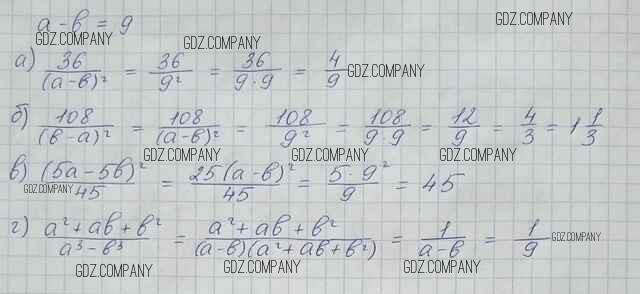 a - в = 9
GDZ.COMPANY
GDZ.COMPANY
GDZ.COMPANY
а) 36/(a-в)² = 36/9² = 36/(9·9) = 4/9
GDZ.COMPANY
б) 108/(в-a)² = 108/(a-в)² = 108/9² = 108/(9·9) = 12/9 = 4/3 = 1 1/3
GDZ.COMPANY
GDZ.COMPANY
GDZ.COMPANY
в) (5a-5в)²/45 = 25(a-в)²/45 = 5·9²/9 = 45
GDZ.COMPANY
г) (a²+aв+в²)/(a³-в³) = (a²+aв+в²)/((a-в)(a²+aв+в²)) = 1/(a-в) = 1/9
GDZ.COMPANY
GDZ.COMPANY
GDZ.COMPANY
GDZ.COMPANY